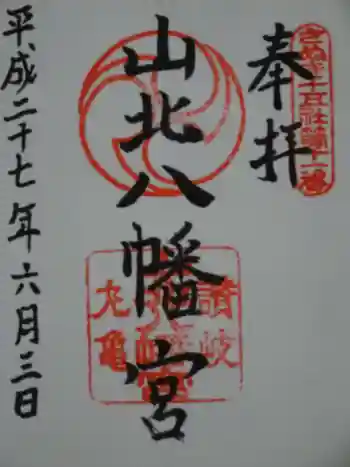 奉拝
山北八幡宮
讃岐
丸亀
平成二十七年六月三日